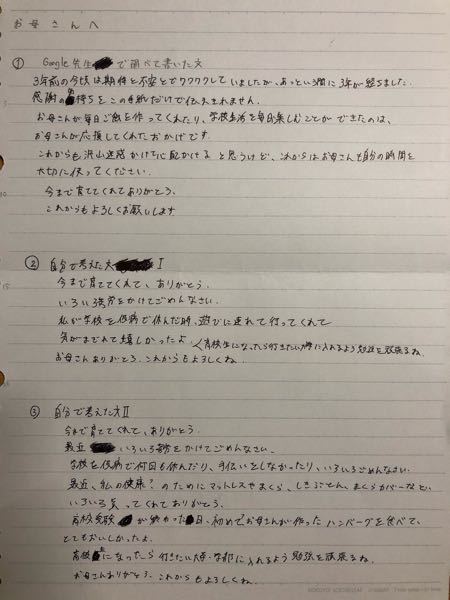 お母さんへ
① Google先生で調べて書いた文
3年前の今頃は期待と不安とでワクワクしていましたが、あっという間に3年が経ちました。
感謝の気持ちをこの手紙だけで伝えきれません。
お母さんが毎日ご飯を作ってくれたり、学校生活を毎日楽しむことができたのは、
お母さんが応援してくれたおかげです。
これからも沢山迷惑かけて心配かけると思うけど、これからはお母さんも自分の時間を
大切に使ってください。
今まで育ててくれてありがとう、
これからもよろしくお願いします
② 自分で考えた文 I
今まで育ててくれて、ありがとう。
いろいろ苦労をかけてごめんなさい。
私が学校を仮病で休んだ時、遊びに連れて行ってくれて
気がまぎれて嬉しかったよ
高校生になったら行きたい大学に入れるよう勉強を頑張るね。
お母さんありがとう。これからもよろしくね。
③ 自分で考えた文 II
今まで育ててくれて、ありがとう。
最近 いろいろ苦労をかけてごめんなさい。
学校を仮病で何日も休んだり、手伝いをしなかったり、いろいろごめんなさい。
最近、私の健康?のためにマットレスやまくら、しきぶとん、まくらカバーなどい
ろいろ買ってくれてありがとう。
高校受験が終わった日、初めてお母さんが作ったハンバーグを食べて、
とてもおいしかったよ。
高校になったら行きたい大学・学部に入れるよう勉強を頑張るね。
お母さんありがとう。これからもよろしくね。